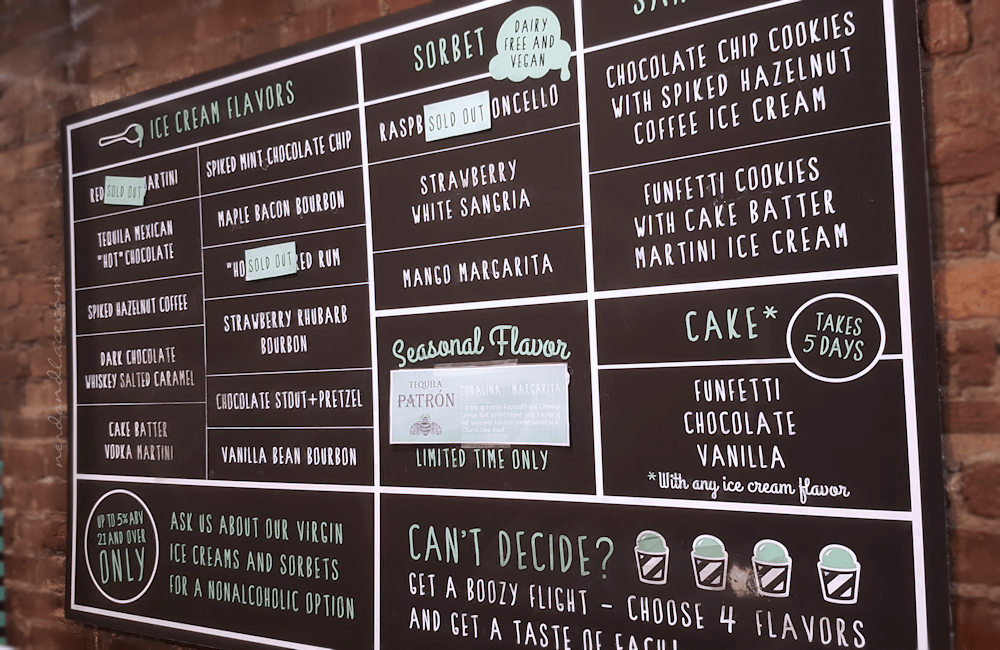 ICE CREAM FLAVORS
RED
SOLD OUT
MARTINI
TEQUILA MEXICAN
"HOT" CHOCOLATE
SPIKED HAZELNUT COFFEE
DARK CHOCOLATE
WHISKEY SALTED CARAMEL
CAKE BATTER
VODKA MARTINI
SPIKED MINT CHOCOLATE CHIP
MAPLE BACON BOURBON
"HO
SOLD OUT
RED RUM
STRAWBERRY RHUBARB
BOURBON
CHOCOLATE STOUT+PRETZEL
VANILLA BEAN BOURBON
SORBET
DAIRY
FREE AND
VEGAN
RASPB
SOLD OUT
ONCELLO
STRAWBERRY
WHITE SANGRIA
MANGO MARGARITA
Seasonal Flavor
TEQUILA
PATRÓN
CORALINA MARGARITA
LIMITED TIME ONLY
CHOCOLATE CHIP COOKIES
WITH SPIKED HAZELNUT
COFFEE ICE CREAM
FUNFETTI COOKIES
WITH CAKE BATTER
MARTINI ICE CREAM
CAKE*
TAKES
5 DAYS
FUNFETTI
CHOCOLATE
VANILLA
*With any ice cream flavor
UP TO 5% ABV
21 AND OVER
ONLY
ASK US ABOUT OUR VIRGIN
ICE CREAMS AND SORBETS
FOR A NONALCOHOLIC OPTION
CAN'T DECIDE?
GET A BOOZY FLIGHT - CHOOSE 4 FLAVORS
AND GET A TASTE OF EACH!